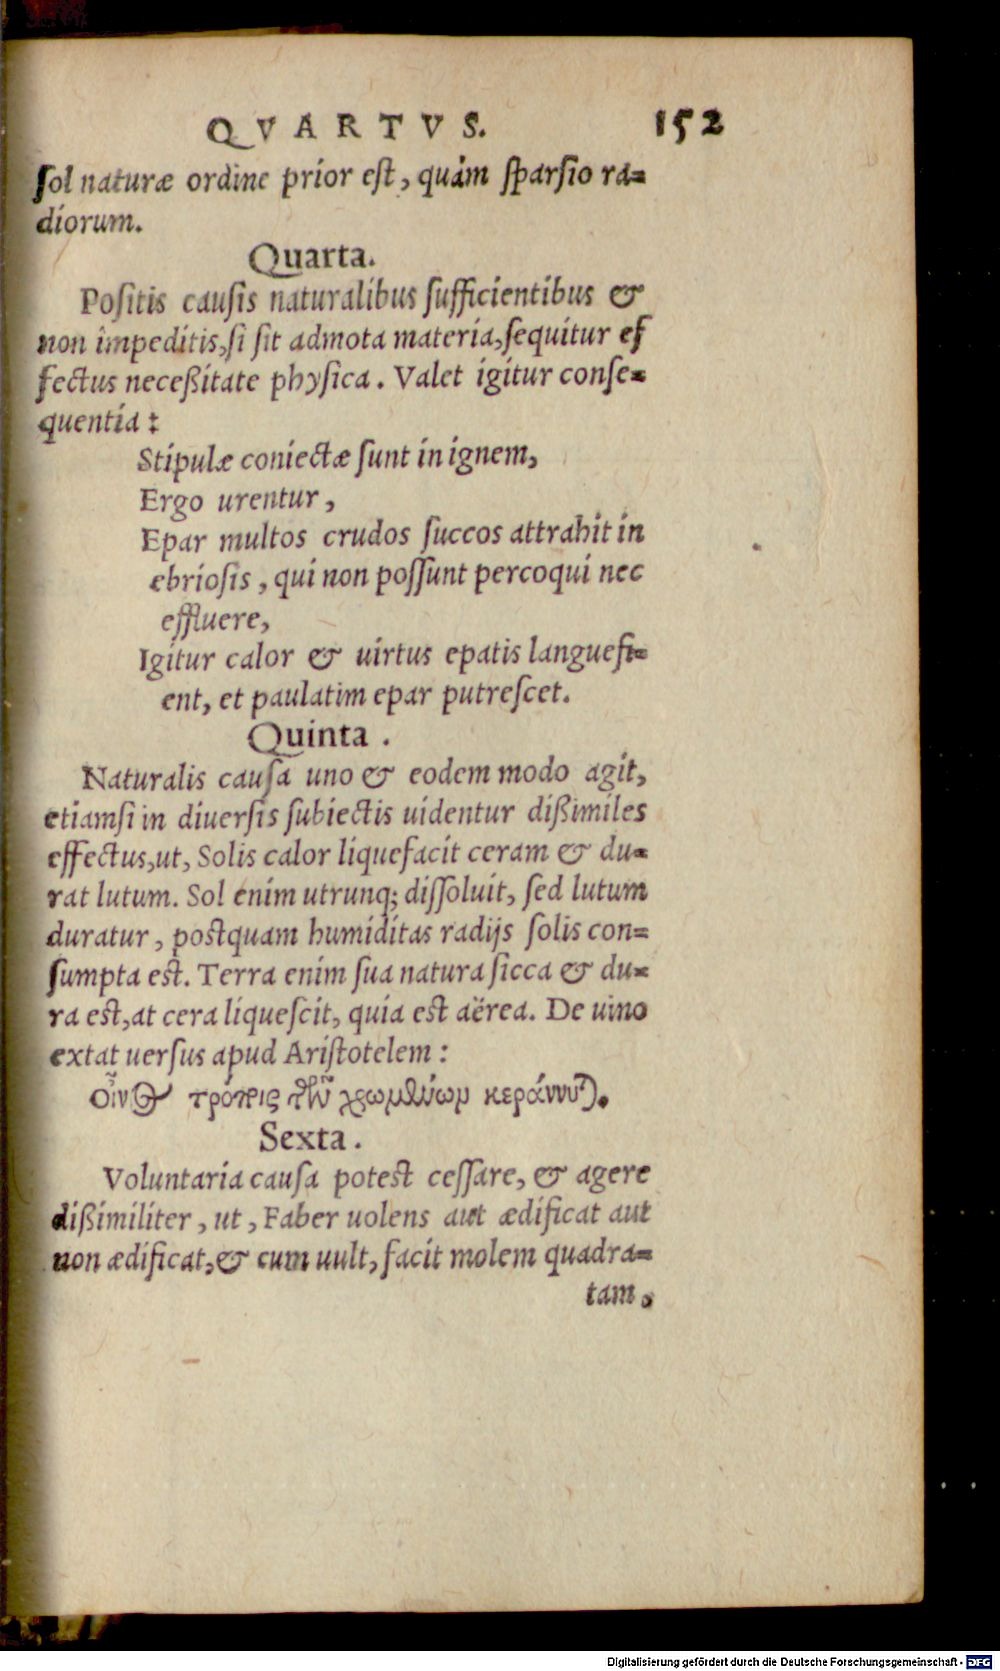 QVARTVS. 152
ſol naturæ ordine prior eſt, quàm ſparſio ra=
diorum.
Quarta.
Poſitis cauſis naturalibus ſufficientibus &
non impeditis, ſi ſit admota materia, ſequitur ef
fectus neceßitate phyſica. Valet igitur conſe=
quentia:
Stipulæ coniectæ ſunt in ignem,
Ergo urentur,
Epar multos crudos ſuccos attrahit in
ebrioſis, qui non poſſunt percoqui nec
effluere,
Igitur calor & uirtus epatis languefi=
ent, et paulatim epar putreſcet.
Quinta.
Naturalis cauſa uno & eodem modo agit,
etiamſi in diuerſis ſubiectis uidentur dißimiles
effectus, ut, Solis calor liquefacit ceram & du=
rat lutum. Sol enim utrunq; diſſoluit, ſed lutum
duratur, poſtquam humiditas radijs ſolis con=
ſumpta eſt. Terra enim ſua natura ſicca & du=
ra eſt, at cera liqueſcit, quia eſt aërea. De uino
extat uerſus apud Ariſtotelem:
οἶνος τρόποις τῶν χρωμένων κεράννυται.
Sexta.
Voluntaria cauſa poteſt ceſſare, & agere
dißimiliter, ut, Faber uolens aut ædificat aut
non ædificat, & cum uult, facit molem quadra=
tam.
Digitalisierung gefördert durch die Deutsche Forschungsgemeinschaft - DFG